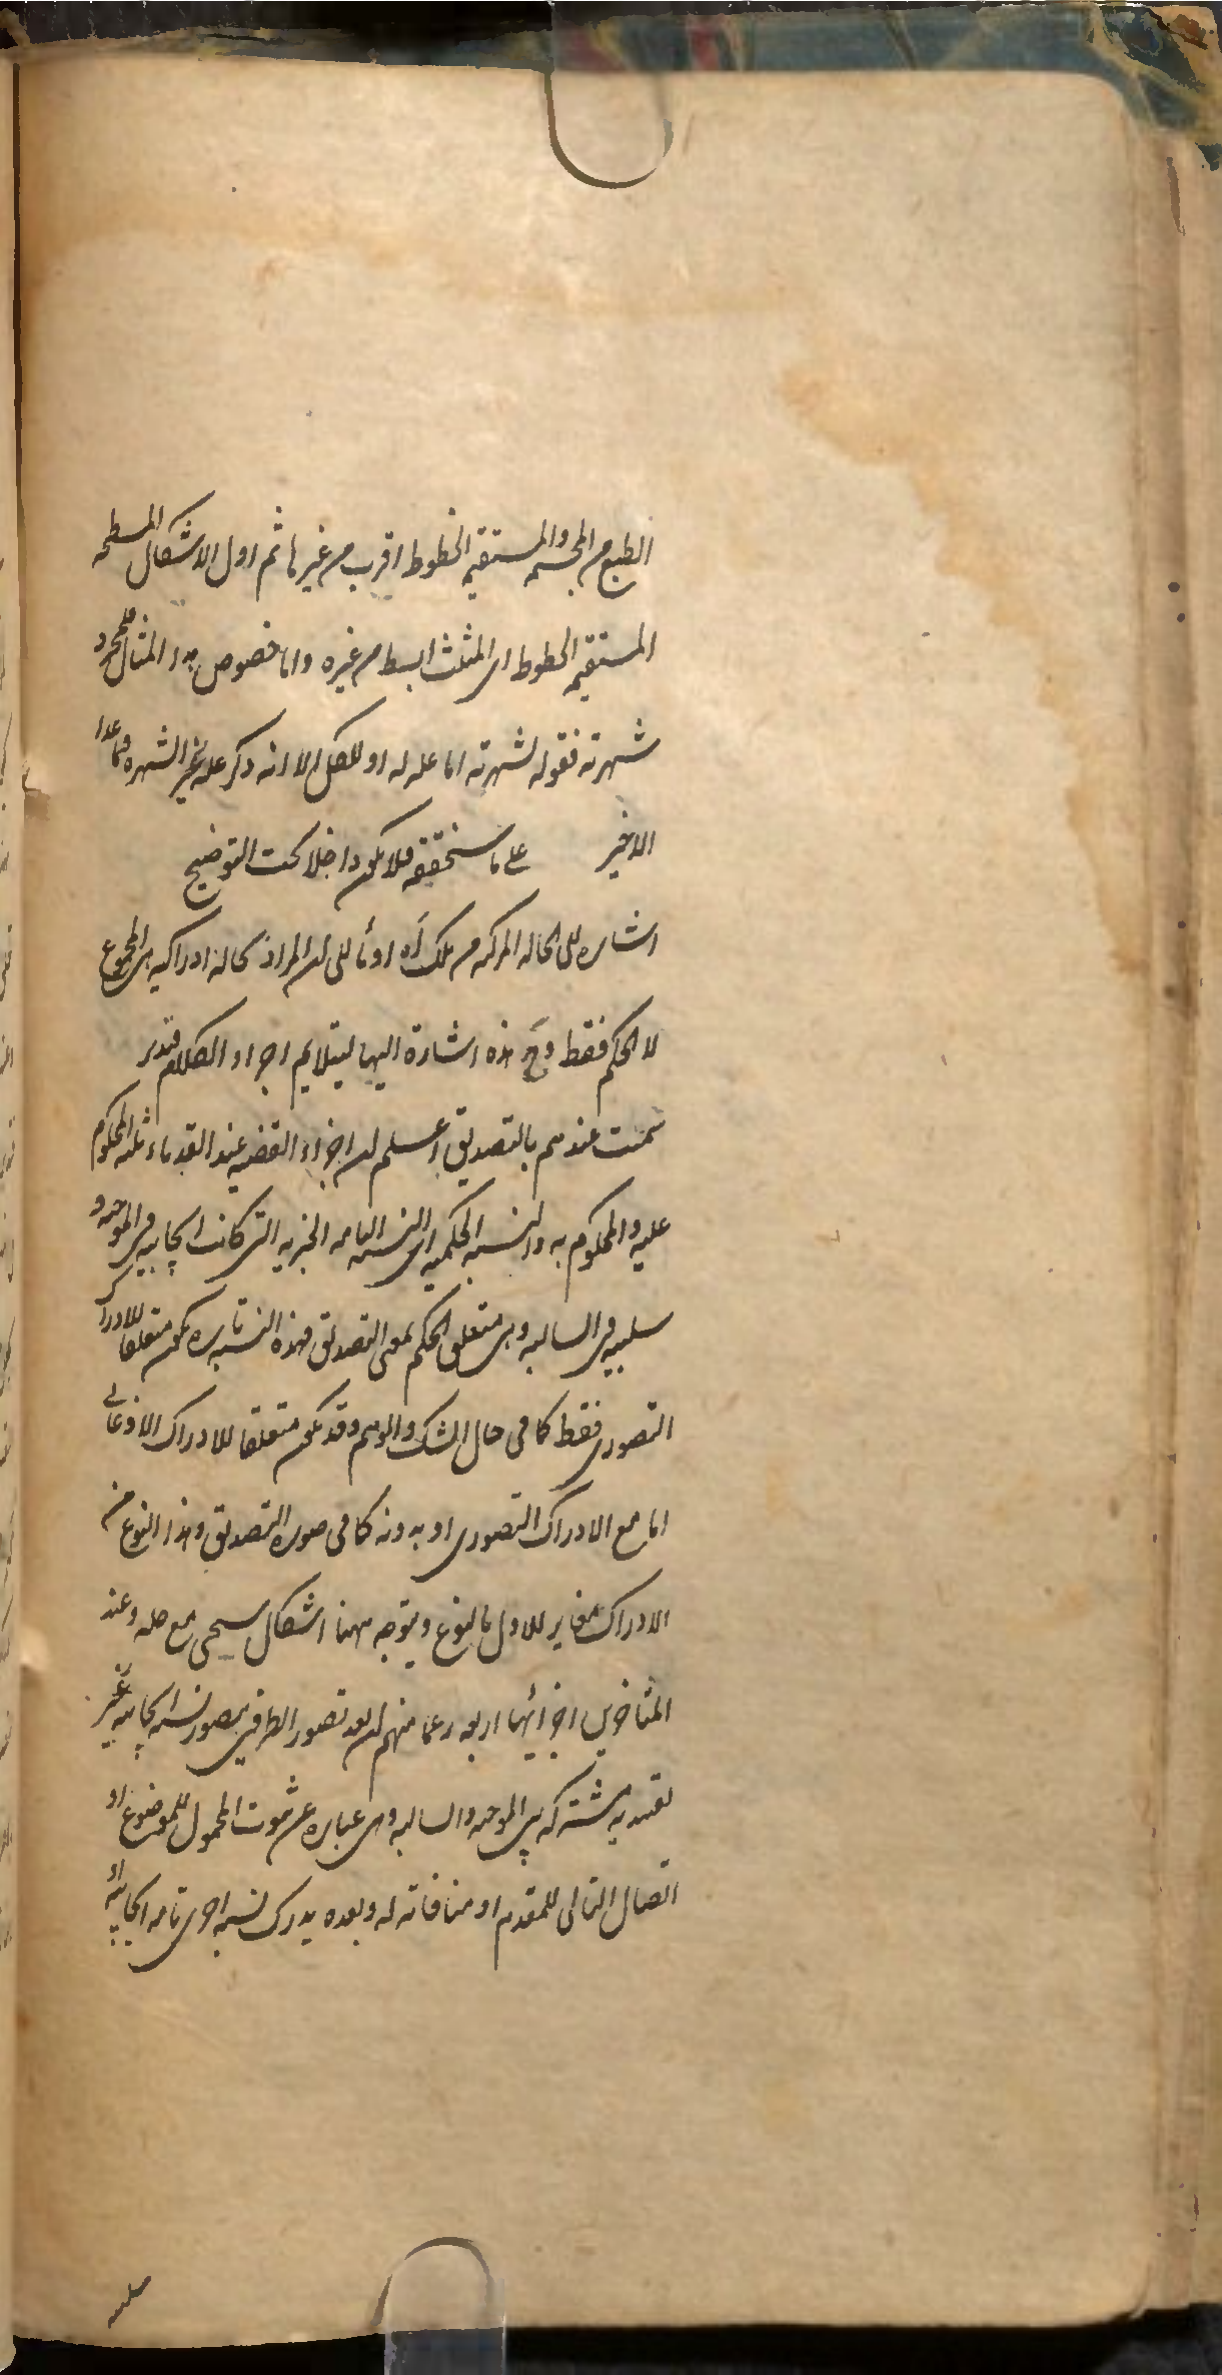 الطبع من المجسمه والمستقيمه الخطوط اقرب من غيرها ثم اول الاشكال المسطحه
المستقيمه الخطوط اى المثلث ابسط من غيره واما خصوص هذا المثال فلمجرد
شهرته فقوله لشهرته اما عله له او للكل الا انه ذكر عله غير الشهره فيما عدا
الاخير على ما سنحققه فلا يكون داخلا تحت التوضيح
اشاره الى الحاله المركبه من تلك آه اومأ الى ان المراد بحاله ادراكيه هى المجموع
لا الحكم فقط وح هذه اشارة اليها ليتلايم اجزاء الكلام فتدبر
سميت عندهم بالتصديق اعلم ان اجزاء القضيه عند القدماء ثلثه المحكوم
عليه والمحكوم به والنسبه الحكميه اى النسبه التامه الخبريه التى كانت ايجابيه فى الموجبه و
سلبيه فى السالبه وهى متعلق الحكم بمعنى التصديق فهذه النسبه تاره يكون متعلقا للادراك
التصورى فقط كما فى حال الشك والوهم وقد يكون متعلقا للادراك الاذعانى
اما مع الادراك التصورى او بدونه كما فى صوره التصديق وهذا النوع من
الادراك مغاير للاول بالنوع ويتوجه ههنا اشكال سيجى مع حله وعند
المتاخرين اجزائها اربعه زعما منهم ان بعد تصور الطرفين يتصور نسبه ايجابيه غير
تقييديه مشتركه بين الموجبه والسالبه وهى عباره عن ثبوت المحمول للموضوع او
اتصال التالى للمقدم او منافاته له وبعده يدرك نسبه اخرى تامه ايجابيه او
سلبيه